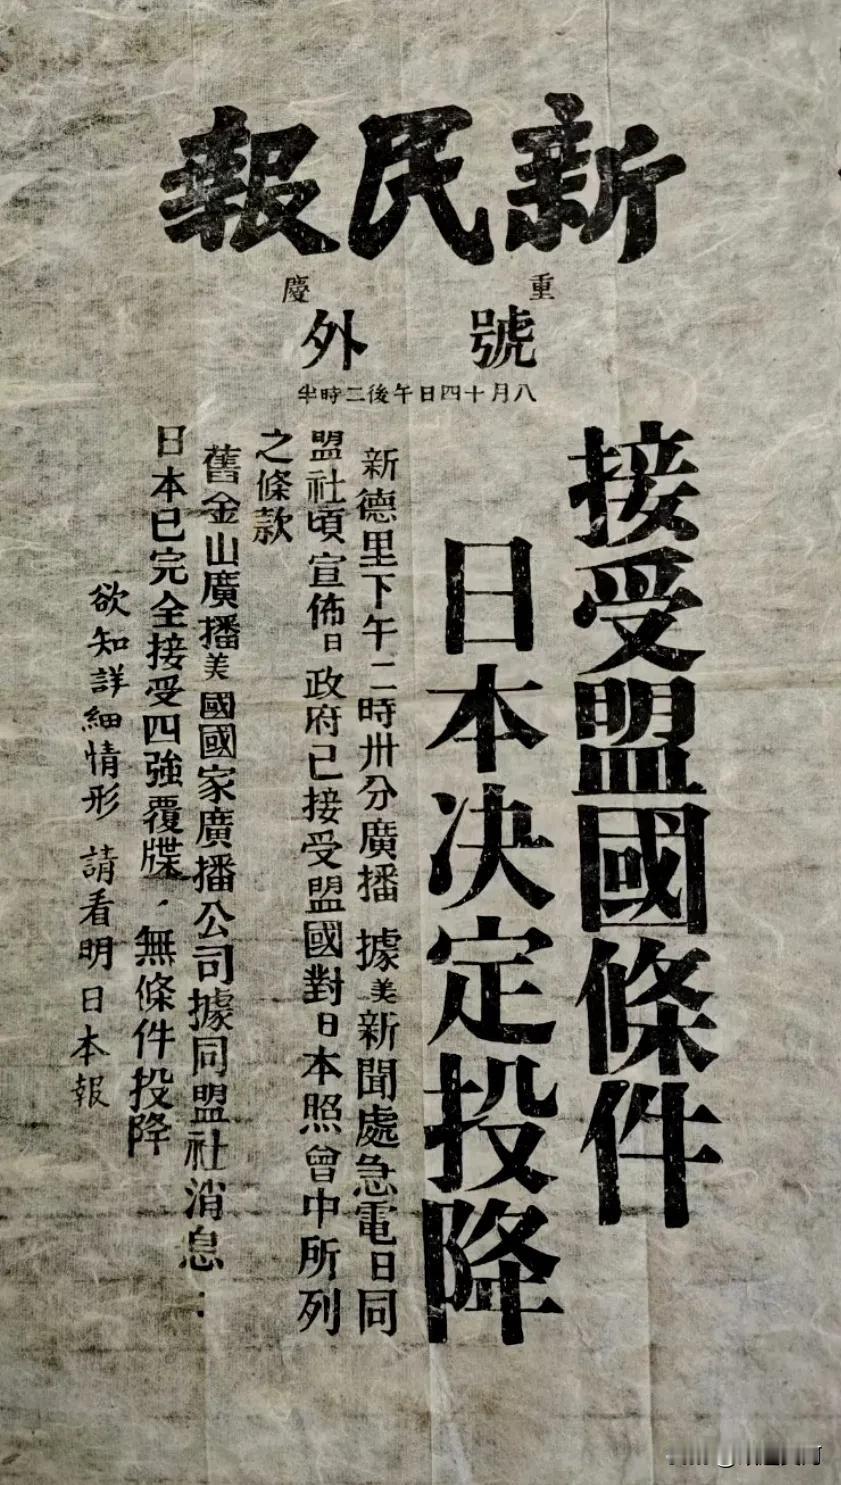 新民報
重慶
號外
八月十四日午後二時半
接受盟國條件
日本決定投降
新德里下午二時卅分廣播 據美新聞處急電日同
盟社頃宣佈日政府已接受盟國對日本照會中所列
之條款
舊金山廣播美國國家廣播公司據同盟社消息：
日本已完全接受四強覆牒，無條件投降
欲知詳細情形 請看明日本報